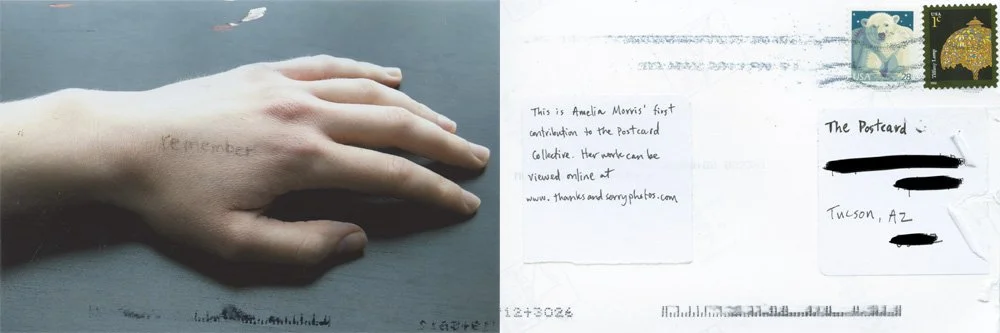 remember
This is Amelia Morris' first
contribution to the Postcard
Collective. Her work can be
viewed online at
www.thanksandsorryphotos.com
USA 23
USA
1¢
Tiffany Lamp
The Postcard
Tucson, AZ
12+3026